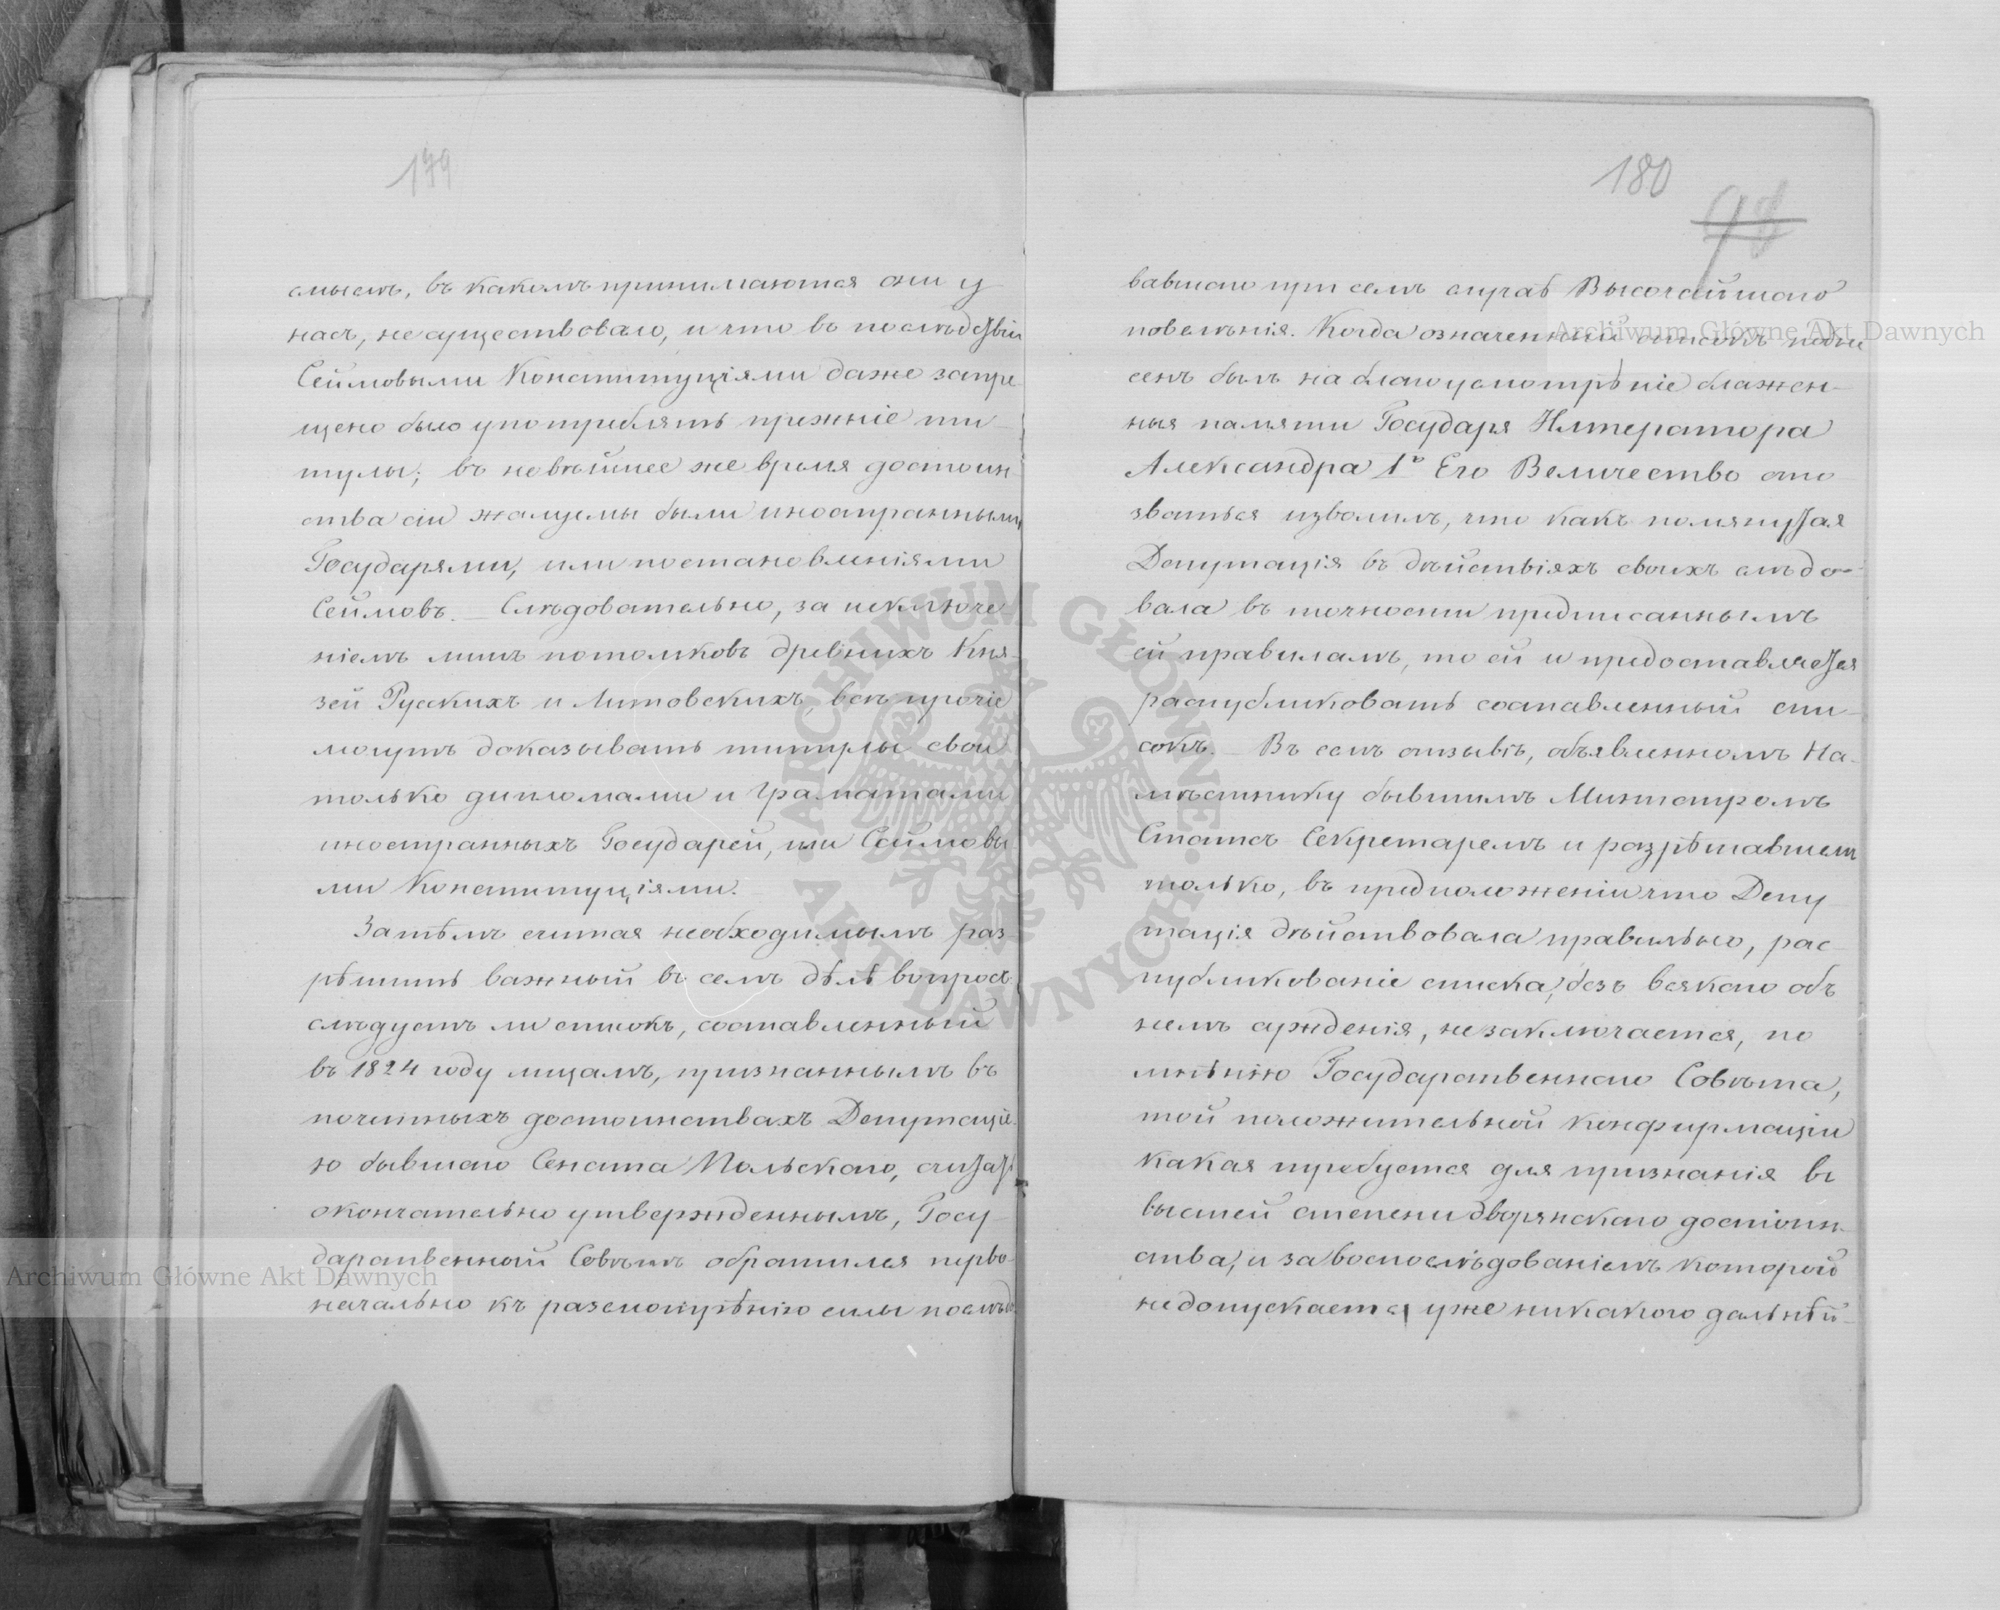 179
смыслѣ, въ какомъ принимаются они у
насъ, не существовало, и что въ послѣдствіи
Сеймовыми Конституціями даже запре-
щено было употреблять прежніе ти-
тулы; въ новѣйшее же время достоин-
ства сіи жалуемы были иностранными
Государями, или постановленіями
Сеймовъ. — Слѣдовательно, за исключе
ніемъ лишь потомковъ древнихъ Кня-
зей Русскихъ и Литовскихъ, всѣ прочіе
могутъ доказывать титулы свои
только дипломами и Граматами
иностранныхъ Государей, или Сеймовы
ми Конституціями.
Затѣмъ считая необходимымъ раз-
рѣшить важный въ семъ дѣлѣ вопросъ:
слѣдуетъ ли списокъ, составленный
въ 1824 году лицамъ, признаннымъ въ
почетныхъ достоинствахъ Депутаціе-
ю бывшаго Сената Польскаго, считать
окончательно утвержденнымъ, Госу-
дарственный Совѣтъ обратился перво-
начально къ разсмотрѣнію силы послѣдо
180
98
вавшаго при семъ случаѣ Высочайшаго
повелѣнія. Когда означенный списокъ подне
сенъ былъ на благоусмотрѣніе блажен-
ныя памяти Государя Императора
Александра 1го Его Величество ото
зваться изволилъ, что какъ помянутая
Депутація въ дѣйствіяхъ своихъ слѣдо-
вала въ точности предписаннымъ
ей правиламъ, то ей и предоставляется
распубликовать составленный спи-
сокъ. — Въ семъ отзывѣ, объявленномъ На-
мѣстнику бывшимъ Министромъ
Статсъ Секретаремъ и разрѣшавшемъ
только, въ предположеніи что Депу
тація дѣйствовала правильно, рас-
публикованіе списка, безъ всякаго объ
немъ сужденія, не заключается, по
мнѣнію Государственнаго Совѣта,
той положительной конфирмаціи
какая требуется для признанія въ
высшей степени дворянскаго достоин-
ства, и за воспослѣдованіемъ которой
не допускается уже никакого дальнѣй-
Archiwum Główne Akt Dawnych
Archiwum Główne Akt Dawnych
ARCHIWUM GŁÓWNE · AKT DAWNYCH ·